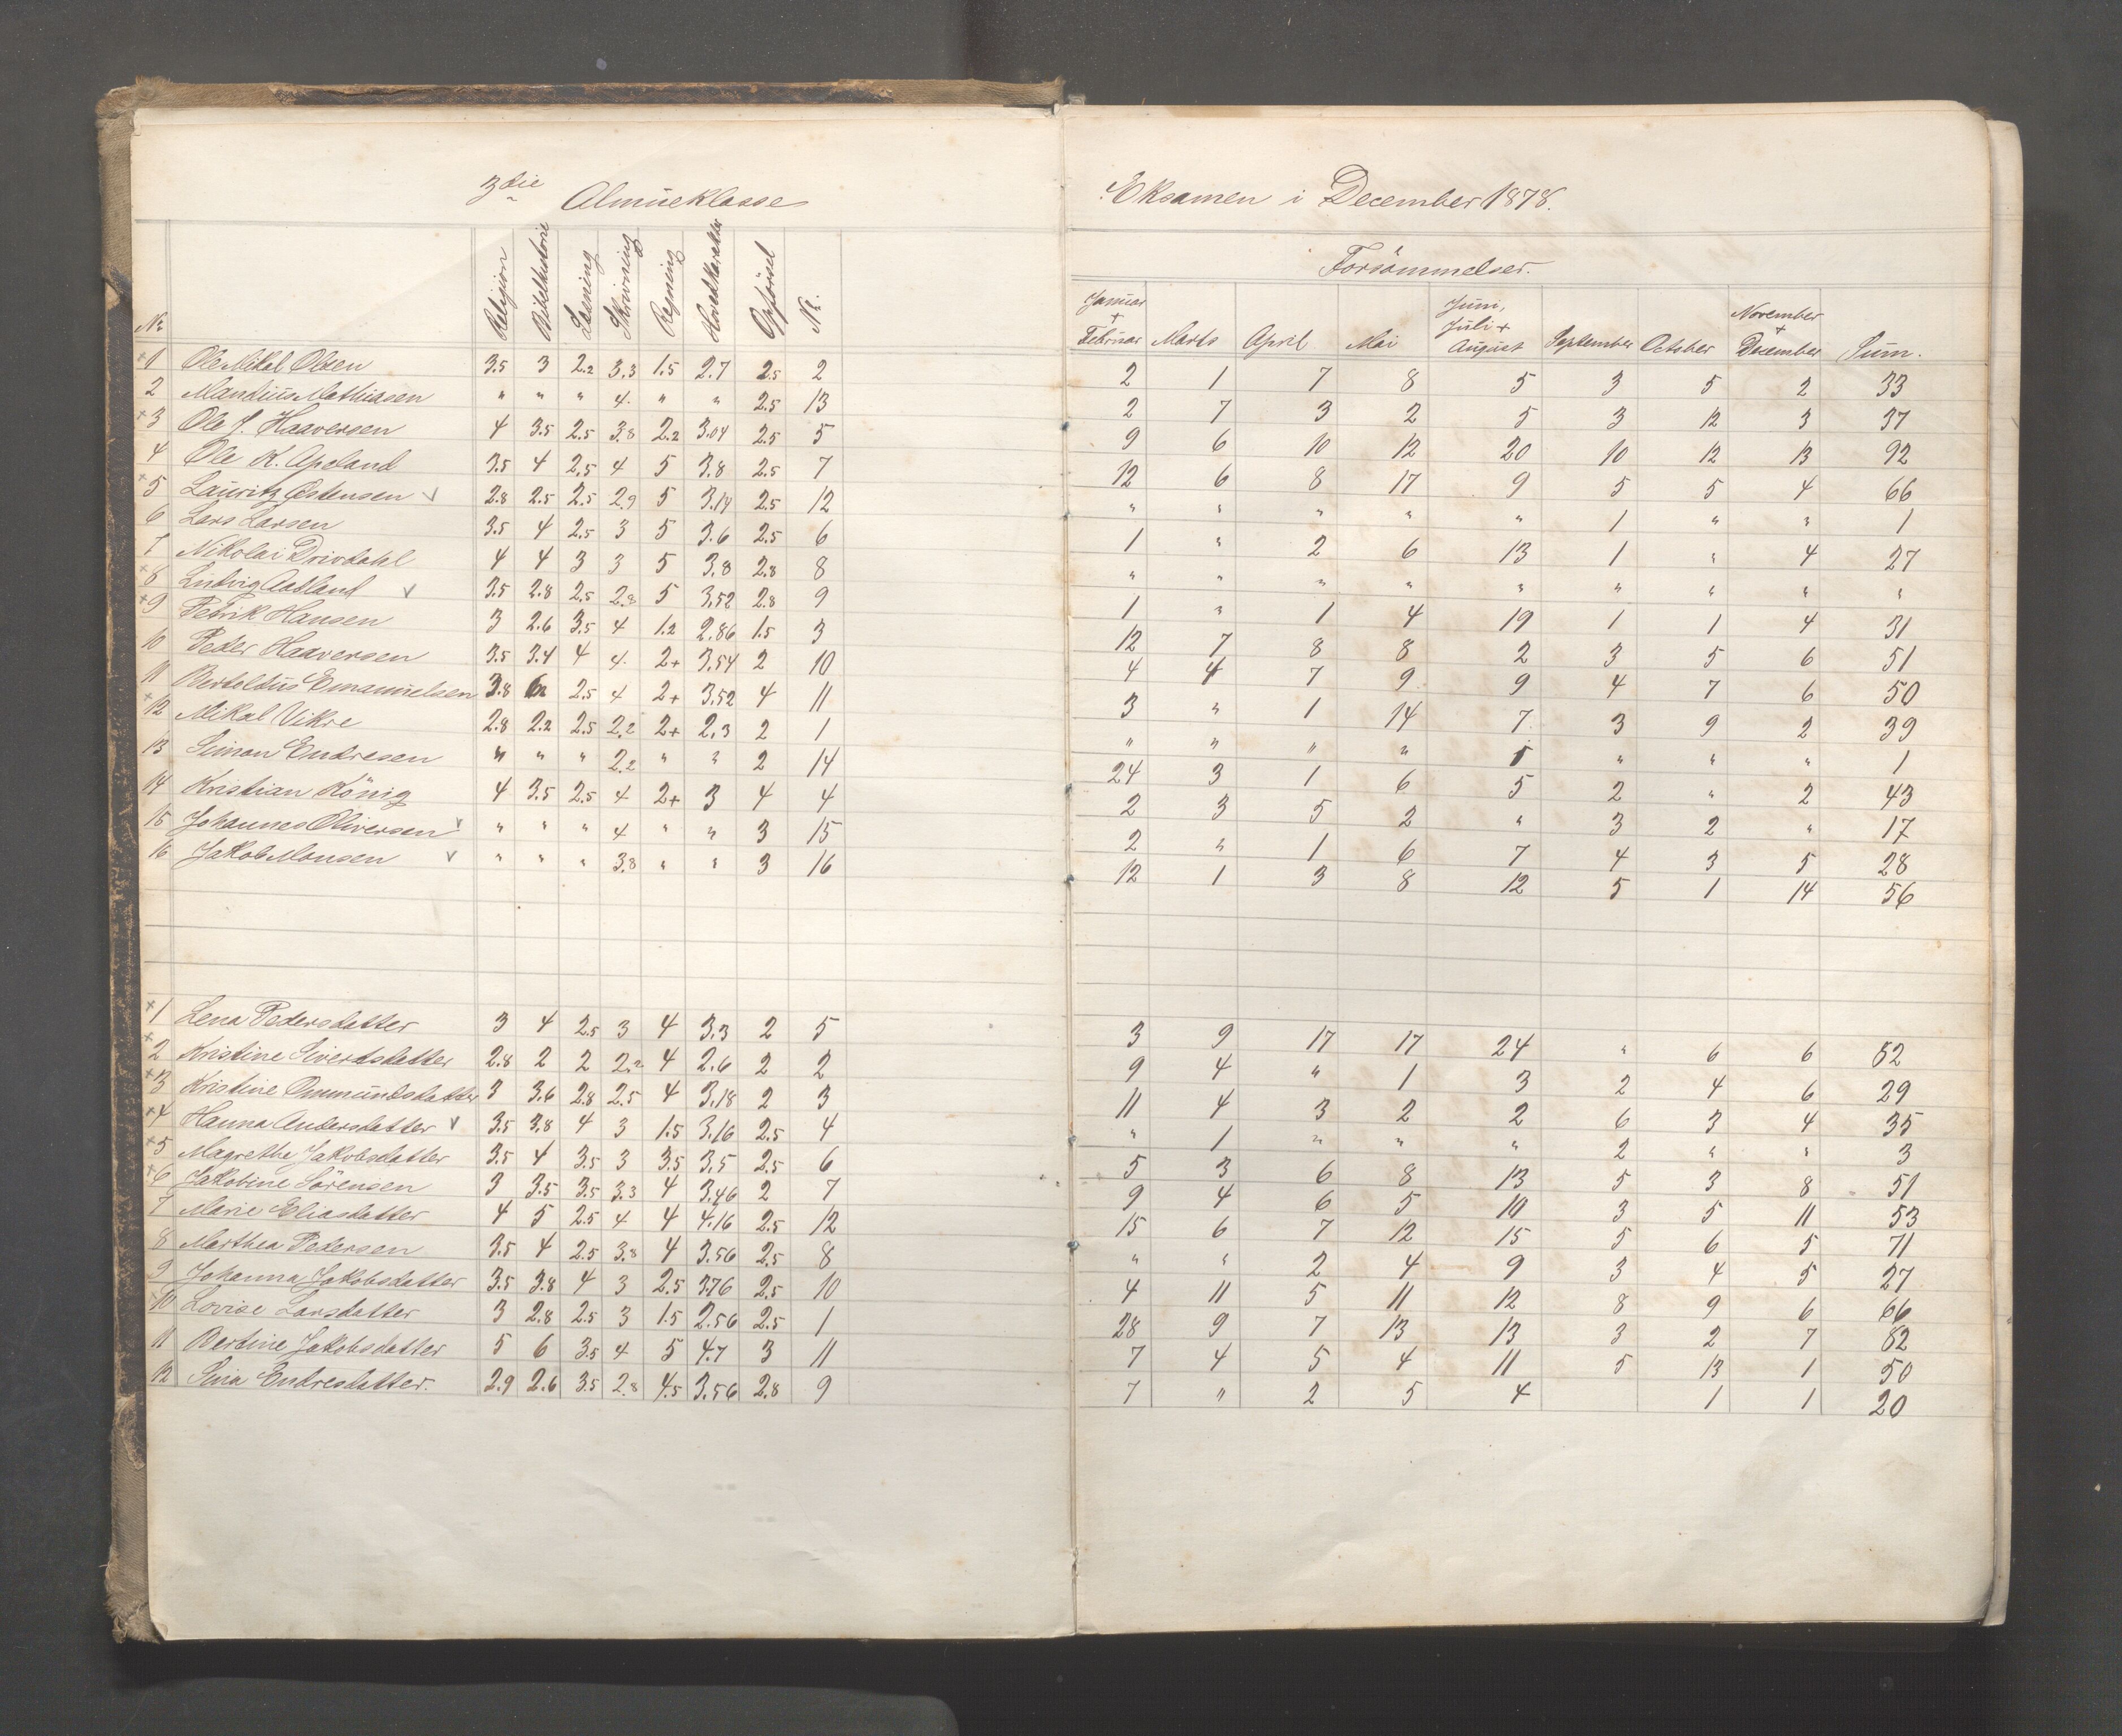 3die Almueklasse
Eksamen i December 1878.
Forsömmelser.
No Religion Bibelhistorie Læsning Skrivning Regning Hovedkarakter Opförsel No.
Januar + Februar Marts April Mai Juni, Juli + August September October November + December Sum.
×1 Ole Mikal Olsen 3.5 3 2.2 3.3 1.5 2.7 2.5 2 2 1 7 8 5 3 5 2 33
2 Mandius Mathiasen " " " 4. " " 2.5 13 2 7 3 2 5 3 12 3 37
×3 Ole J. Haaversen 4 3.5 2.5 3.8 2.2 3.04 2.5 5 9 6 10 12 20 10 12 13 92
4 Ole K. Apeland 3.5 4 2.5 4 5 3.8 2.5 7 12 6 8 17 9 5 5 4 66
×5 Lauritz Østensen v 2.8 2.5 2.5 2.9 5 3.14 2.5 12 " " " " " 1 " " 1
6 Lars Larsen 3.5 4 2.5 3 5 3.6 2.5 6 1 " 2 6 13 1 " 4 27
7 Nikolai Drivdahl 4 4 3 3 5 3.8 2.8 8 " " " " " " " " "
×8 Ludvig Aabland v 3.5 2.8 2.5 2.8 5 3.52 2.8 9 1 " 1 4 19 1 1 4 31
×9 Petrik Hansen 3 2.6 3.5 4 1.2 2.86 1.5 3 12 7 8 8 2 3 5 6 51
10 Peder Haaversen 3.5 3.4 4 4. 2+ 3.54 2 10 4 4 7 9 9 4 7 6 50
11 Bertoldus Emanuelsen 3.8 6 2.5 4 2+ 3.52 4 11 3 " 1 14 7 3 9 2 39
×12 Mikal Vikre 2.8 2.2 2.5 2.2 2+ 2.3 2 1 " " " " 1 " " " 1
13 Simon Endresen " " " 2.2 " " 2 14 24 3 1 6 5 2 " 2 43
14 Kristian König 4 3.5 2.5 4 2+ 3 4 4 2 3 5 2 " 3 2 " 17
15 Johannes Oliversen v " " " 4 " " 3 15 2 " 1 6 7 4 3 5 28
16 Jakob Monsen v " " " 3.8 " " 3 16 12 1 3 8 12 5 1 14 56
×1 Lena Pedersdatter 3 4 2.5 3 4 3.3 2 5 3 9 17 17 24 " 6 6 82
×2 Kristine Sivertsdatter 2.8 2 2 2.2 4 2.6 2 2 9 4 " 1 3 2 4 6 29
×3 Kristine Ommundsdatter 3 3.6 2.8 2.5 4 3.18 2 3 11 4 3 2 2 6 3 4 35
×4 Hanna Andersdatter v 3.5 3.8 4 3 1.5 3.16 2.5 4 " 1 " " " 2 " " 3
×5 Magrethe Jakobsdatter 3.5 4 3.5 3 3.5 3.5 2.5 6 5 3 6 8 13 5 3 8 51
×6 Jakobine Sörensen 3 3.5 3.5 3.3 4 3.46 2 7 9 4 6 5 10 3 5 11 53
7 Marie Eliasdatter 4 5 2.5 4 4 4.16 2.5 12 15 6 7 12 15 5 6 5 71
8 Marthea Pedersen 3.5 4 2.5 3.8 4 3.56 2.5 8 " " 2 4 9 3 4 5 27
9 Johanna Jakobsdatter 3.5 3.8 4 3 2.5 3.76 2.5 10 4 11 5 11 12 8 9 6 66
×10 Lovise Larsdatter 3 2.8 2.5 3 1.5 2.56 2.5 1 28 9 7 13 13 3 2 7 82
11 Bertine Jakobsdatter 5 6 3.5 4 5 4.7 3 11 7 4 5 4 11 5 13 1 50
12 Sina Endresdatter. 2.9 2.6 3.5 2.8 4.5 3.56 2.8 9 7 " 2 5 4 1 1 20